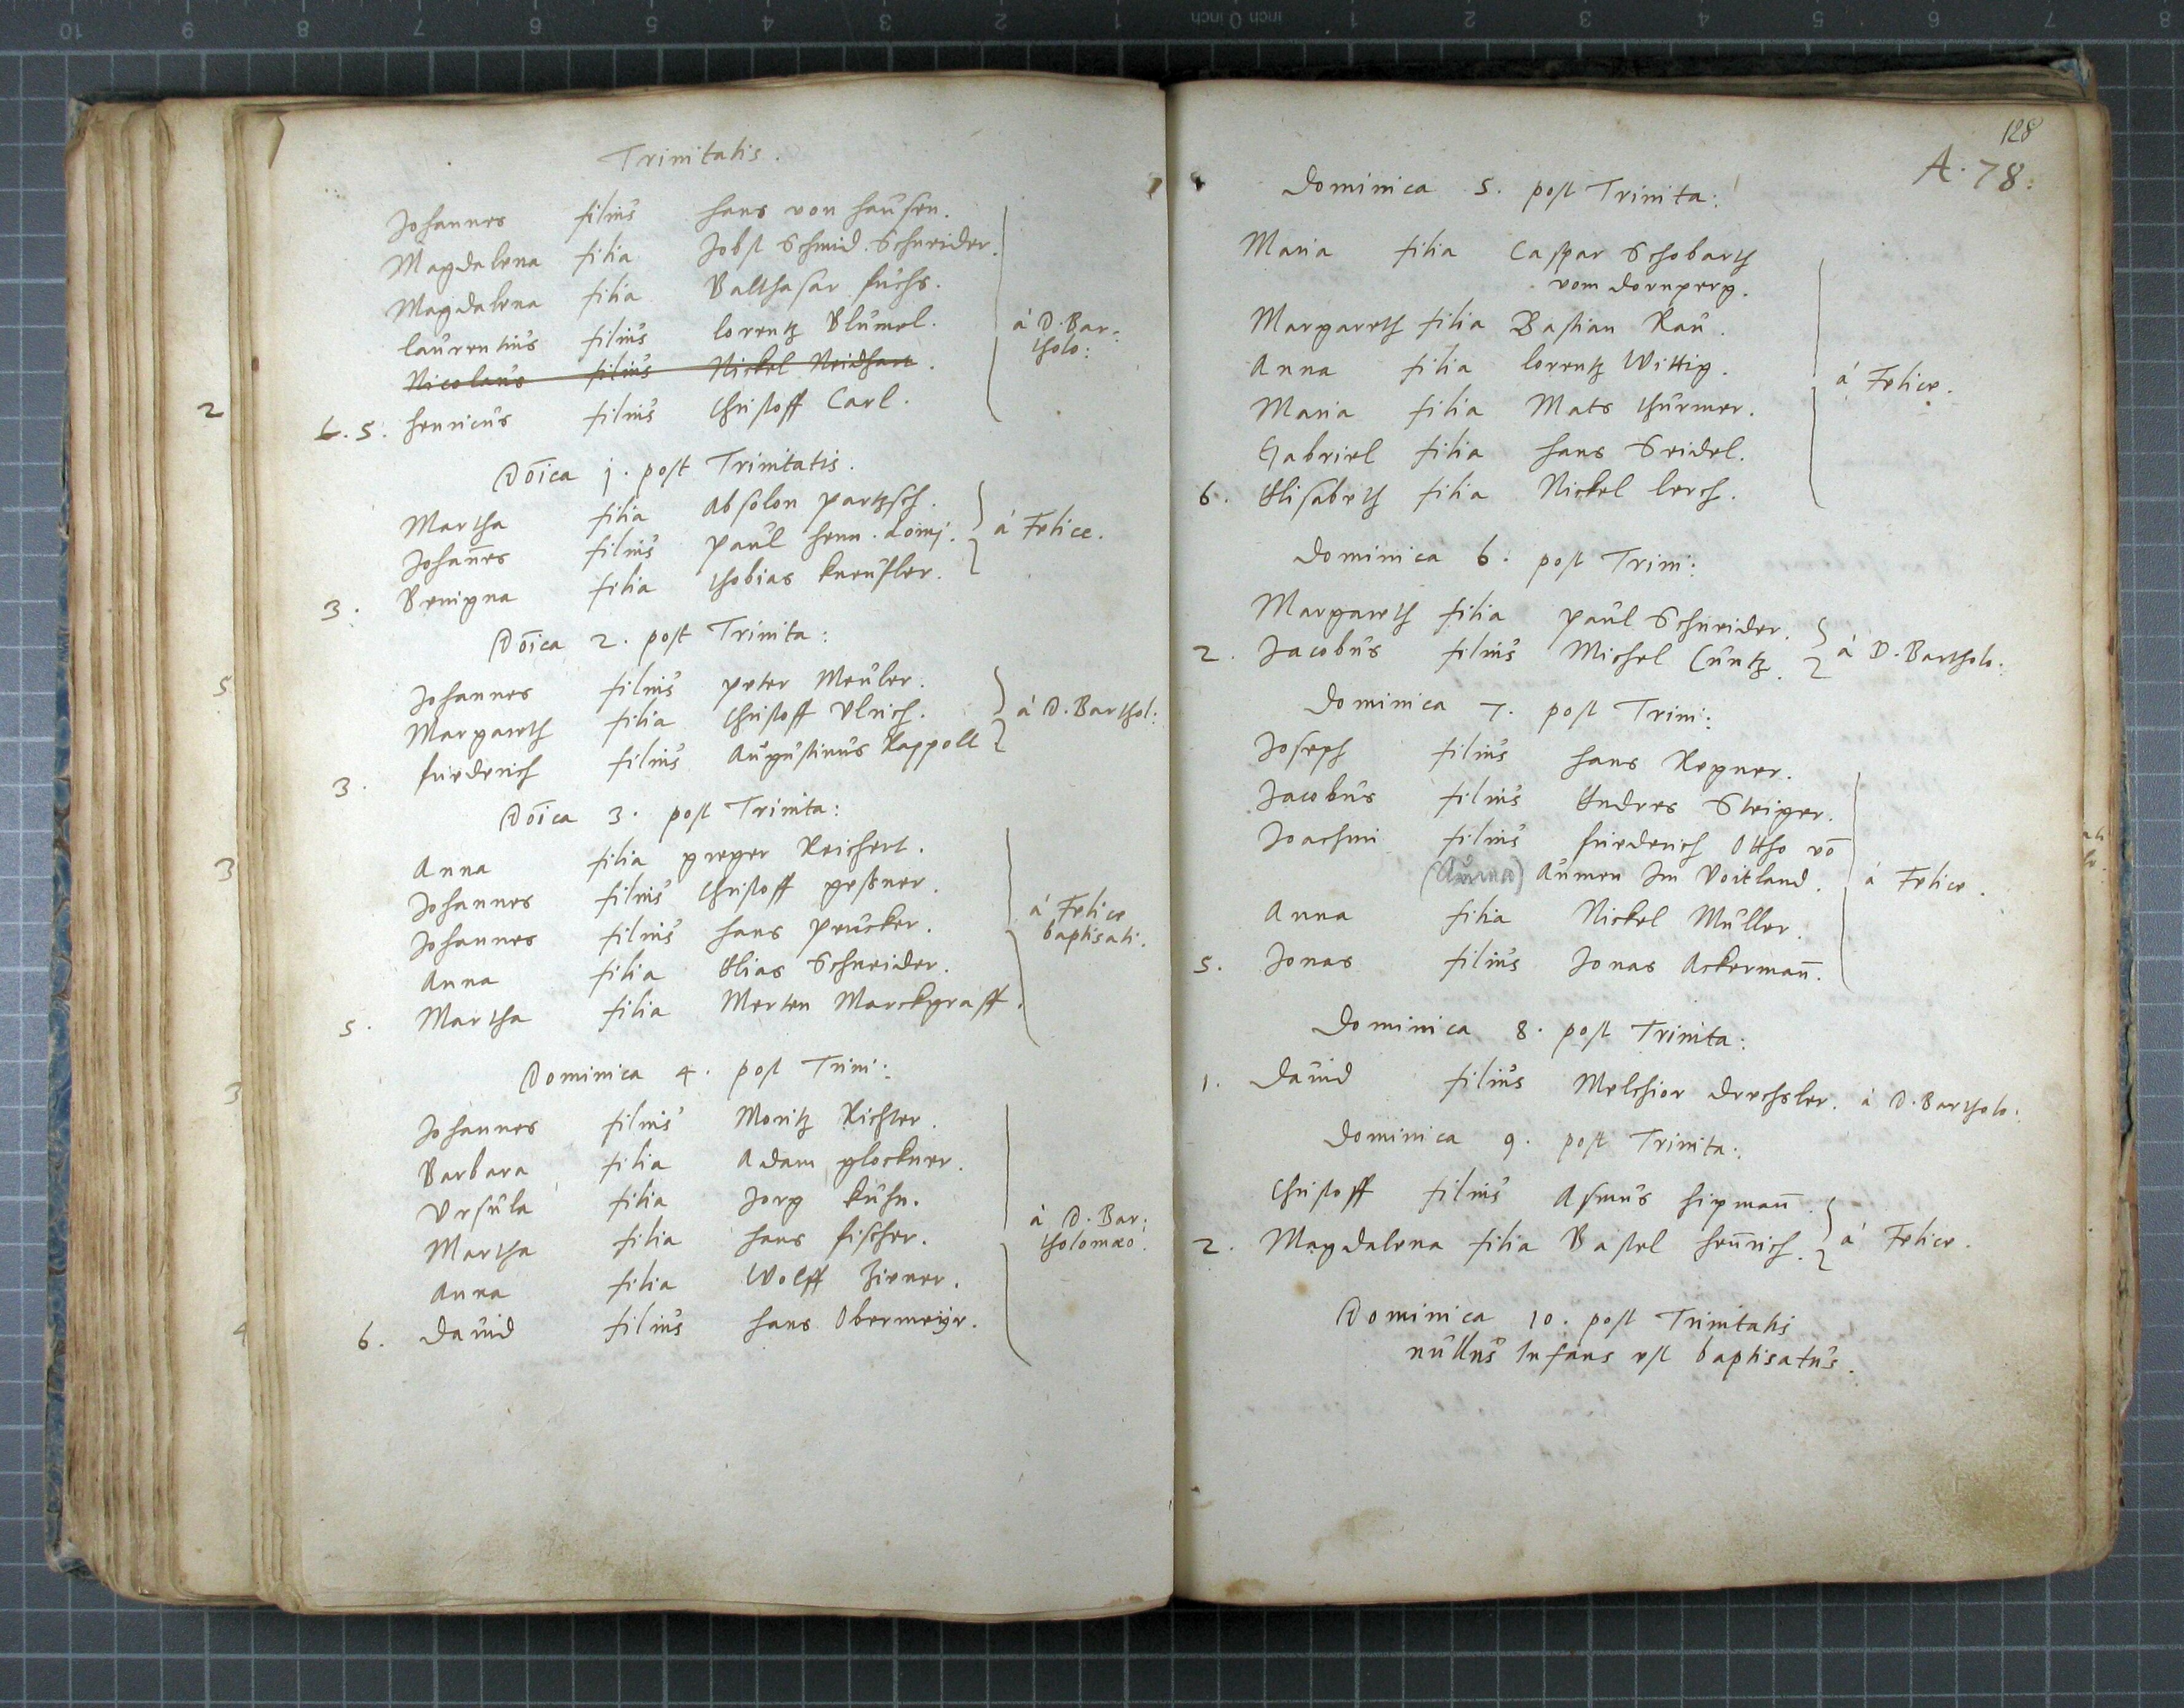 Trinitatis.
Johannes filius Hans von Hausen.
Magdalena filia Jobst Schmid. Schneider.
Magdalena filia Balthasar fuchs.
Laurentius filius Lorentz Blumel.
á D. Bar-
tholo:
Nicolaus filius Nickel Neidhart.
6. 5. Henricus filius Christoff Carl.
Dōica j. post Trinitatis.
Martha filia Absolon partzsch.
Johañes filius paul Henn. Lomj.
á Felice.
3. Benigna filia Thobias kneusler.
Dōica 2. post Trinita:
Johannes filius peter Meuler.
Margareth filia Christoff Ulrich.
á D. Barthol:
3. friederich filius Augustinus Kappolt
Dōica 3. post Trinita:
Anna filia greger Reichert.
Johannes filius Christoff geßner.
Johannes filius Hans peucker.
á Felice
baptisati.
Anna filia Elias Schneider.
5. Martha filia Merten Marckgraff.
Dominica 4. post Trini:
Johannes filius Moritz Richter.
Barbara filia Adam glockner.
Ursula filia Jorg kuhn.
Martha filia Hans fischer.
á D. Bar:
tholomæo.
Anna filia Wolff Zirner.
6. David filius Hans Obermeijr.
2
5
3
3
4
128
A. 78.
Dominica 5. post Trinita:
Maria filia Caspar Schobarth
vom dornperg.
Margareth filia Bastian Rau.
Anna filia Lorentz Wittig.
á Felice.
Maria filia Mats thurmer.
Gabriel filia Hans Seidel.
6. Elisabeth filia Nickel Lerch.
Dominica 6. post Trini:
Margareth filia paul Schneider.
2. Jacobus filius Michel Cuntz.
á D. Bartholo:
Dominica 7. post Trini:
Joseph filius Hans Regner.
Jacobus filius Endres Steiger.
Joachim filius friederich Ottho vō
(Auma) Aumen Im Voitland.
á Felice.
Anna filia Nickel Müller.
5. Jonas filius Jonas Ackermañ.
Dominica 8. post Trinita:
1. David filius Melchior drechsler. á D. Bartholo:
Dominica 9. post Trinita:
Christoff filius Asmus Hipmañ.
2. Magdalena filia Bastel Heñrich.
á Felice.
Dominica 10. post Trinitatis
nullus Infans est baptisatus.